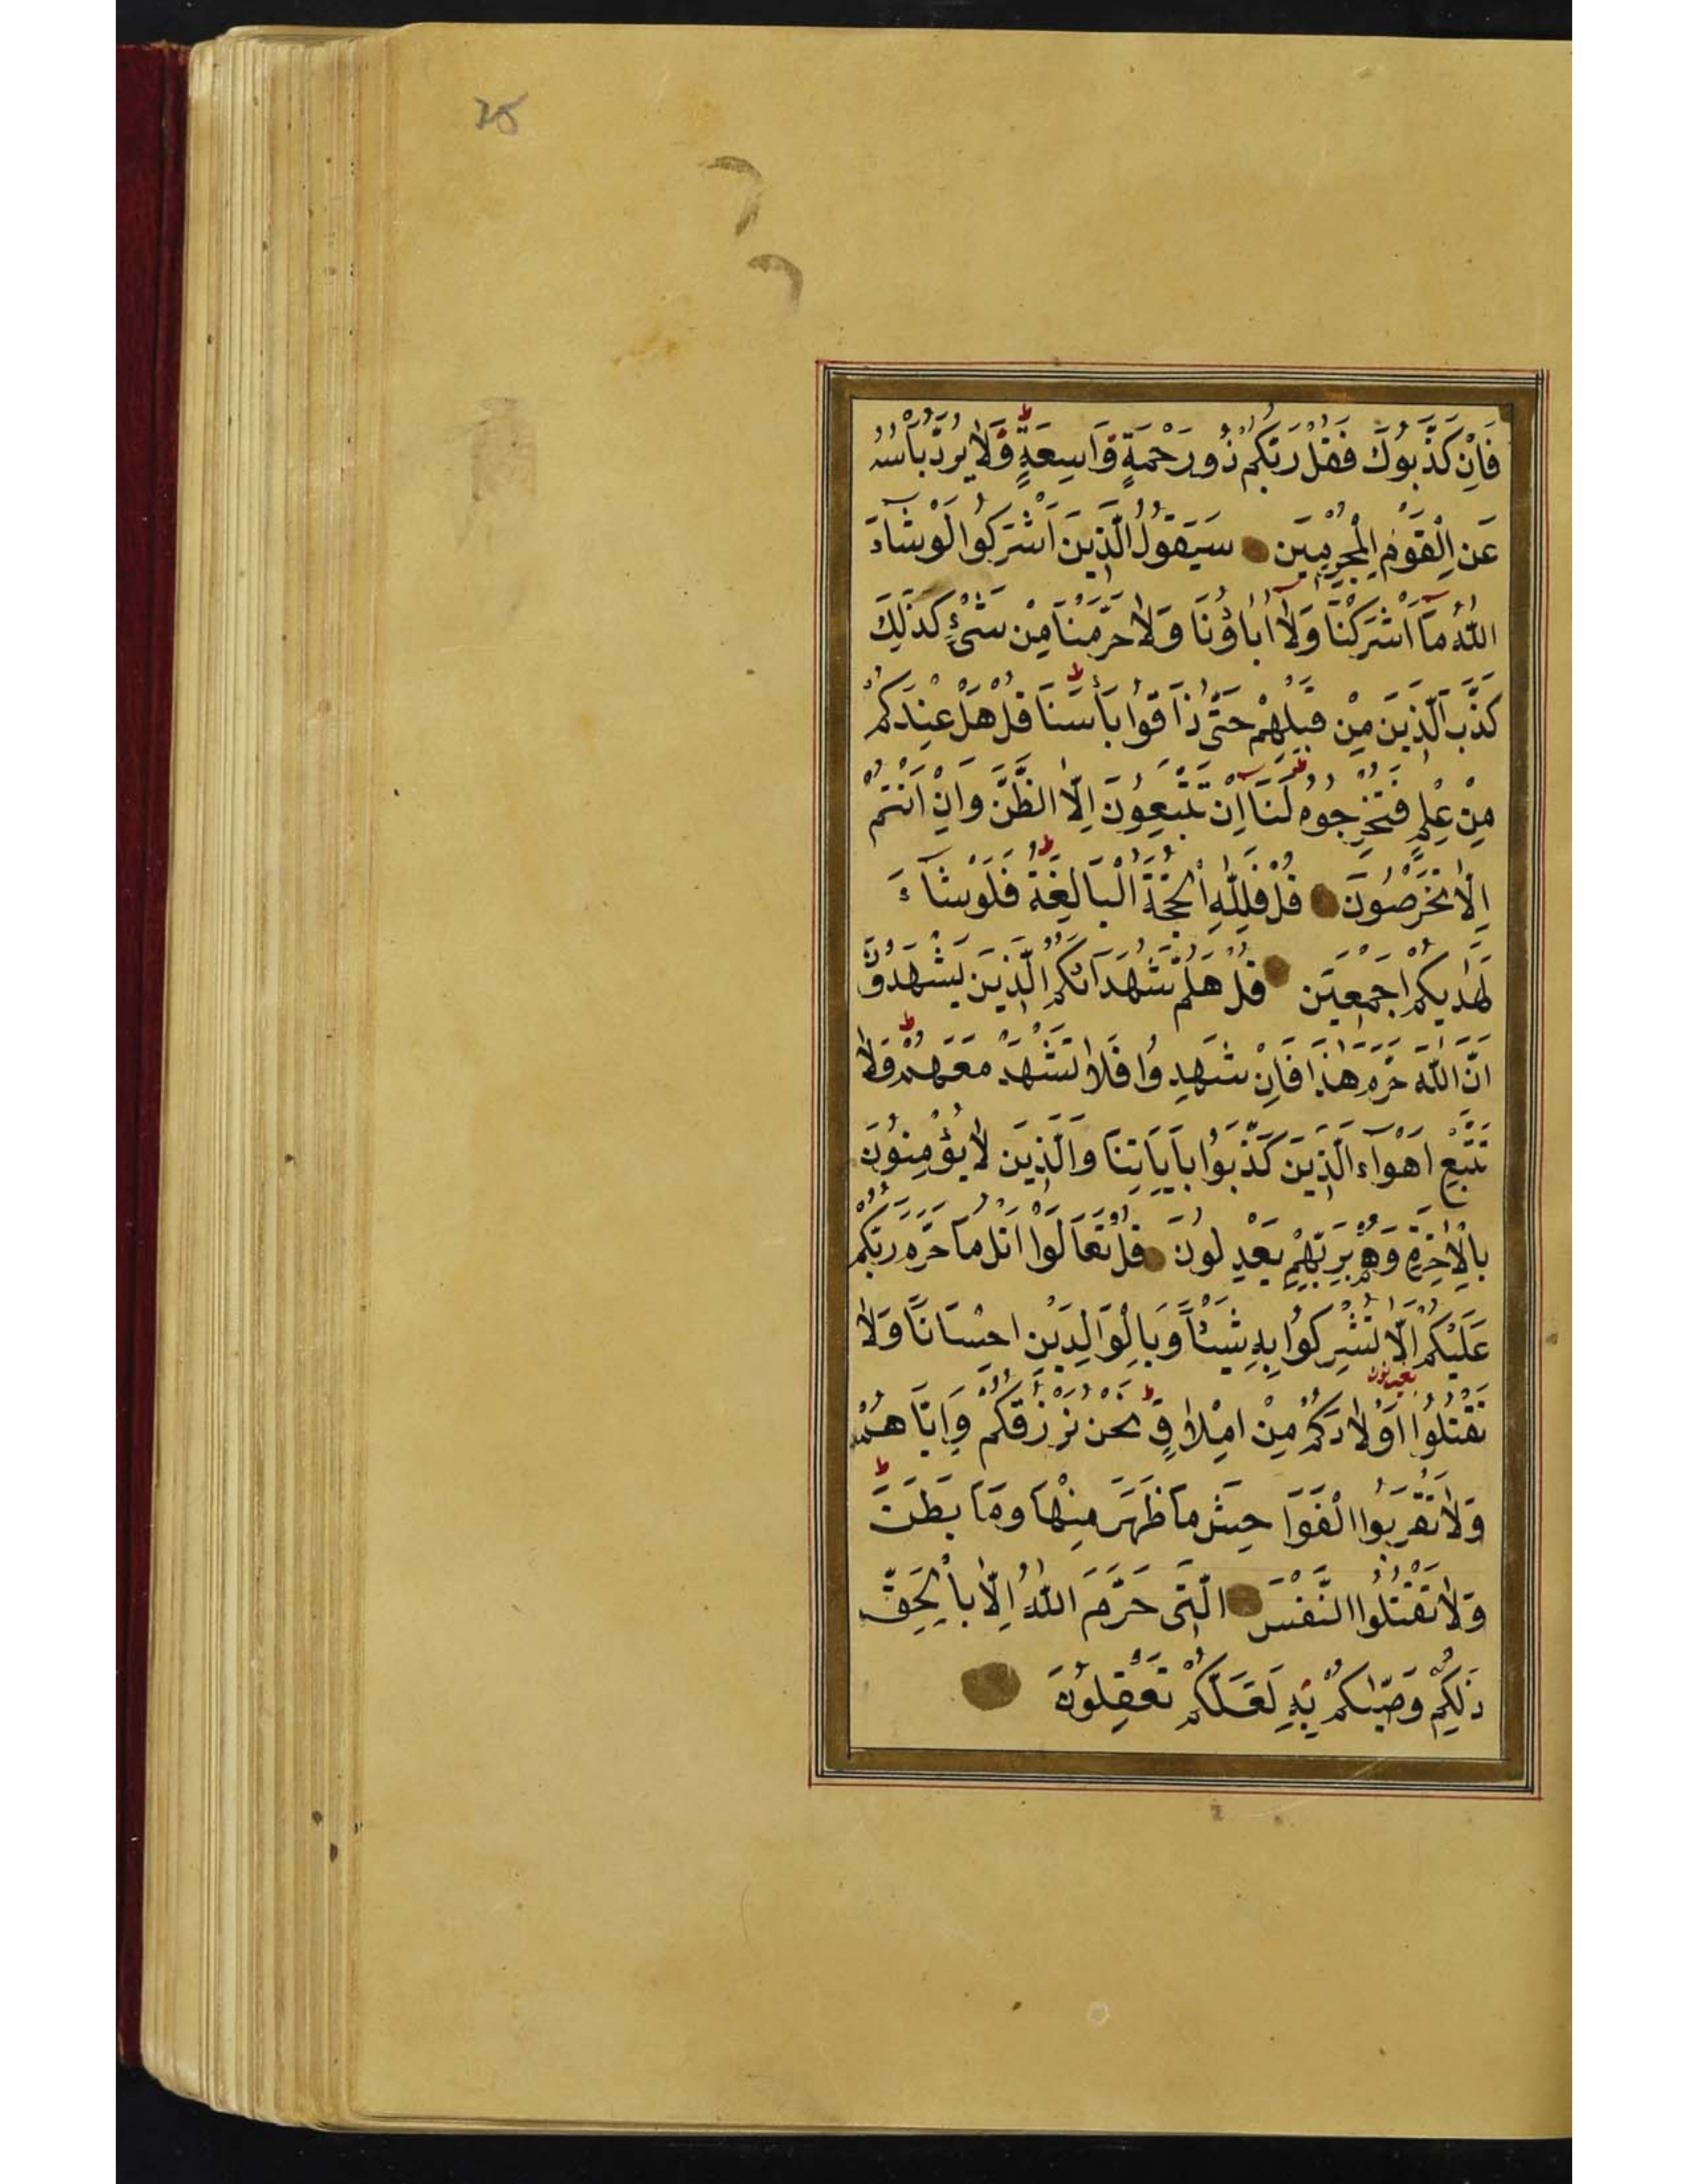 ٢٥
فَاِنْ كَذَّبُوكَ فَقُلْ رَبُّكُمْ ذُو رَحْمَةٍ وَاسِعَةٍ ط وَلَا يُرَدُّ بَأْسُهُ
عَنِ الْقَوْمِ الْمُجْرِمِينَ سَيَقُولُ الَّذِينَ اَشْرَكُوا لَوْ شَآءَ
اللّٰهُ مَآ اَشْرَكْنَا وَلَآ اٰبَاؤُنَا وَلَا حَرَّمْنَا مِنْ شَیْءٍ كَذٰلِكَ
كَذَّبَ الَّذِينَ مِنْ قَبْلِهِمْ حَتّٰى ذَاقُوا بَأْسَنَا ط قُلْ هَلْ عِنْدَكُمْ
مِنْ عِلْمٍ فَتُخْرِجُوهُ لَنَا ط اِنْ تَتَّبِعُونَ اِلَّا الظَّنَّ وَاِنْ اَنْتُمْ
اِلَّا تَخْرُصُونَ قُلْ فَلِلّٰهِ الْحُجَّةُ الْبَالِغَةُ ط فَلَوْ شَآءَ
لَهَدٰيكُمْ اَجْمَعِينَ قُلْ هَلُمَّ شُهَدَآئَكُمُ الَّذِينَ يَشْهَدُونَ
اَنَّ اللّٰهَ حَرَّمَ هٰذَا فَاِنْ شَهِدُوا فَلَا تَشْهَدْ مَعَهُمْ ط وَلَا
تَتَّبِعْ اَهْوَآءَ الَّذِينَ كَذَّبُوا بِاٰيَاتِنَا وَالَّذِينَ لَا يُؤْمِنُونَ
بِالْاٰخِرَةِ وَهُمْ بِرَبِّهِمْ يَعْدِلُونَ قُلْ تَعَالَوْا اَتْلُ مَا حَرَّمَ رَبُّكُمْ
عَلَيْكُمْ اَلَّا تُشْرِكُوا بِهِ شَيْئًا وَبِالْوَالِدَيْنِ اِحْسَانًا وَلَا
تَقْتُلُوا اَوْلَادَكُمْ مِنْ اِمْلَاقٍ ط نَحْنُ نَرْزُقُكُمْ وَاِيَّاهُمْ
وَلَا تَقْرَبُوا الْفَوَاحِشَ مَا ظَهَرَ مِنْهَا وَمَا بَطَنَ ط
وَلَا تَقْتُلُوا النَّفْسَ الَّتِى حَرَّمَ اللّٰهُ اِلَّا بِالْحَقِّ
ذٰلِكُمْ وَصّٰيكُمْ بِهِ لَعَلَّكُمْ تَعْقِلُونَ